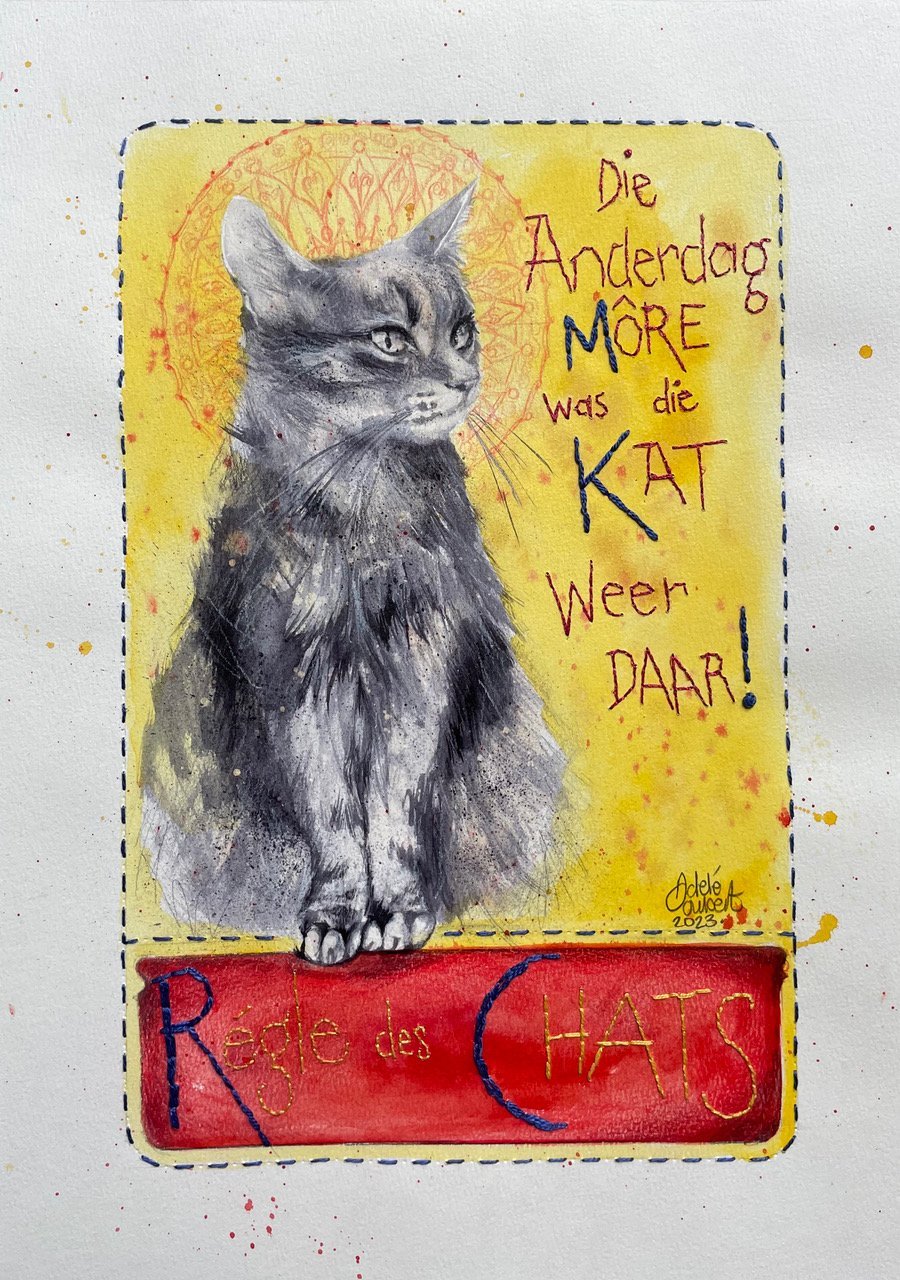 Die
Anderdag
MÔRE
was die
KAT
Weer
DAAR!
Adelé
2023
Régle des CHATS